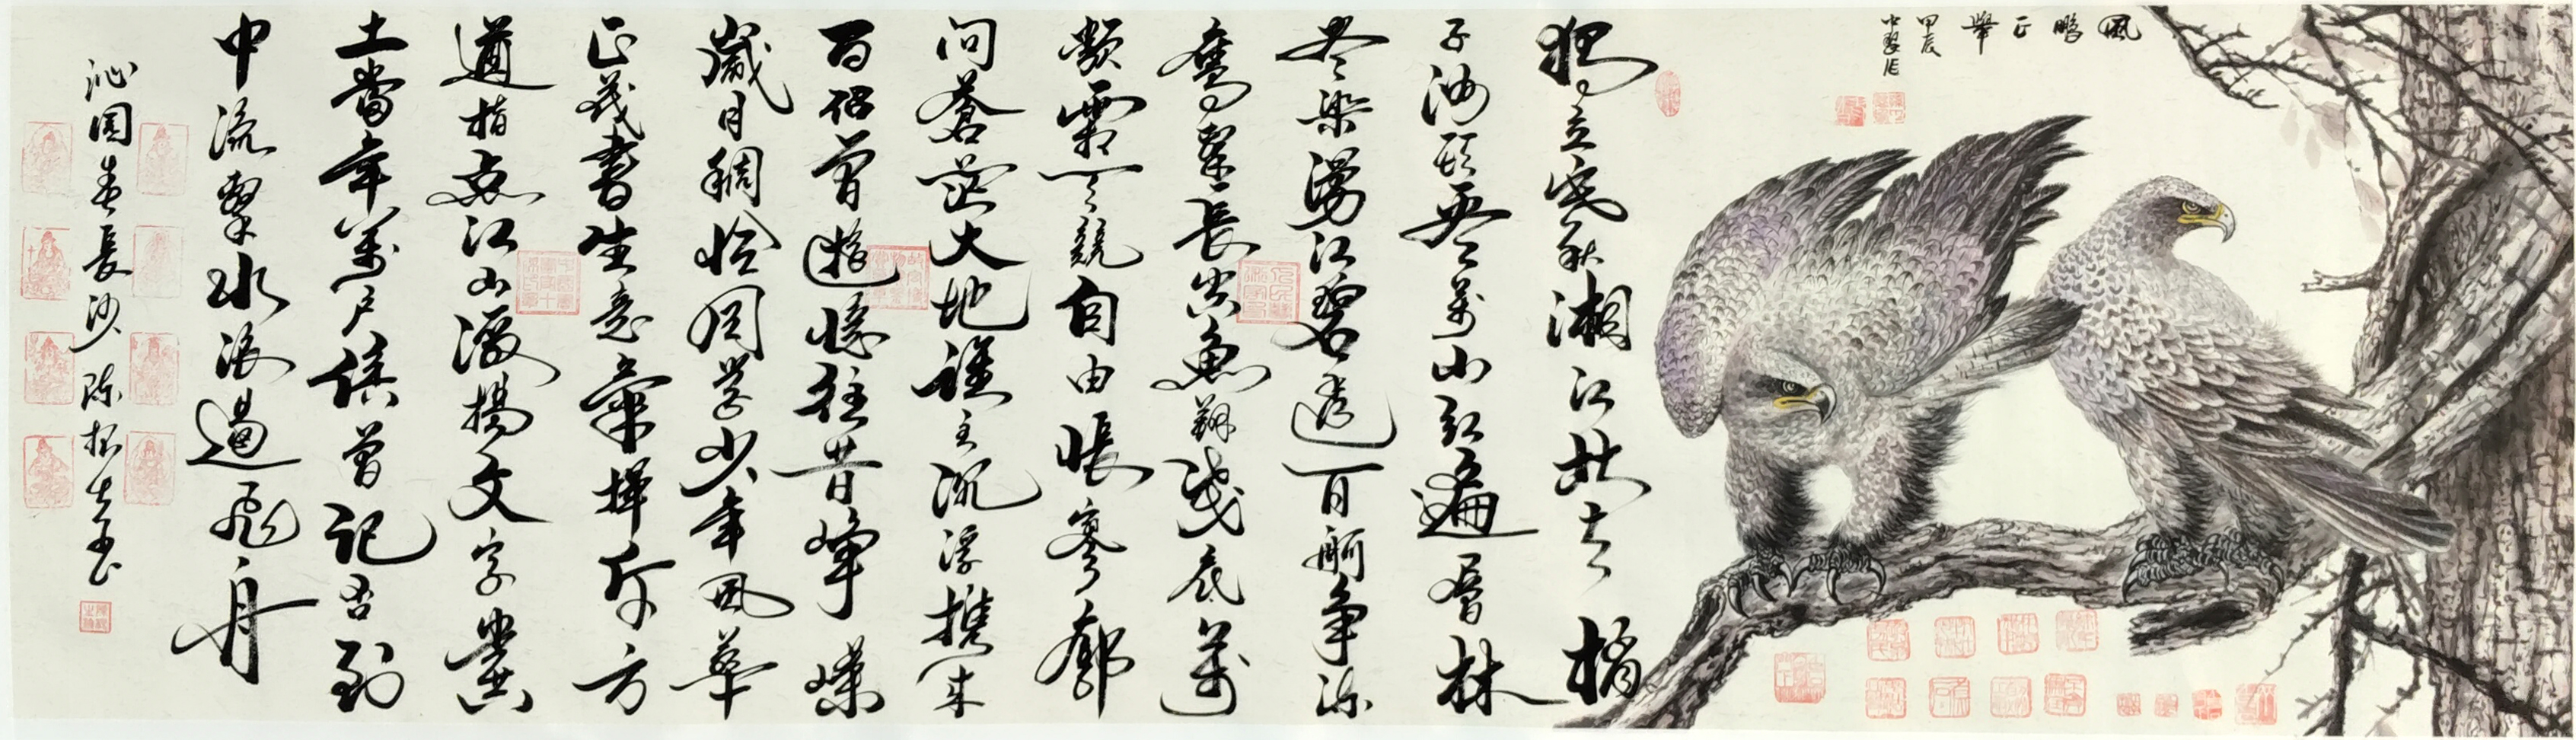 風鵬正舉
甲辰
獨立寒秋湘江北去橘
子洲頭看萬山紅遍層林
盡染漫江碧透百舸爭流
鷹擊長空魚翔淺底萬
類霜天競自由悵寥廓
問蒼茫大地誰主沉浮攜來
百侶曾遊憶往昔崢嶸
歲月稠恰同學少年風華
正茂書生意氣揮斥方
遒指點江山激揚文字糞
土當年萬戶侯曾記否到
中流擊水浪遏飛舟
沁園春長沙